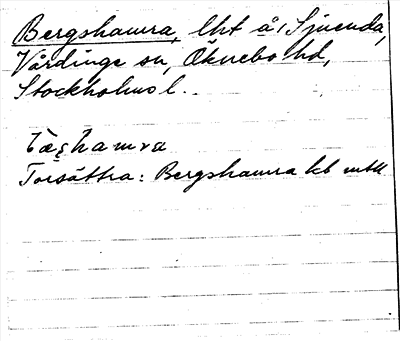 Bergshamra, lht å Sjuenda,
Vårdinge sn, Öknebo hd,
Stockholms l.
bæshamra
Torsättra: Bergshamra kb mtl